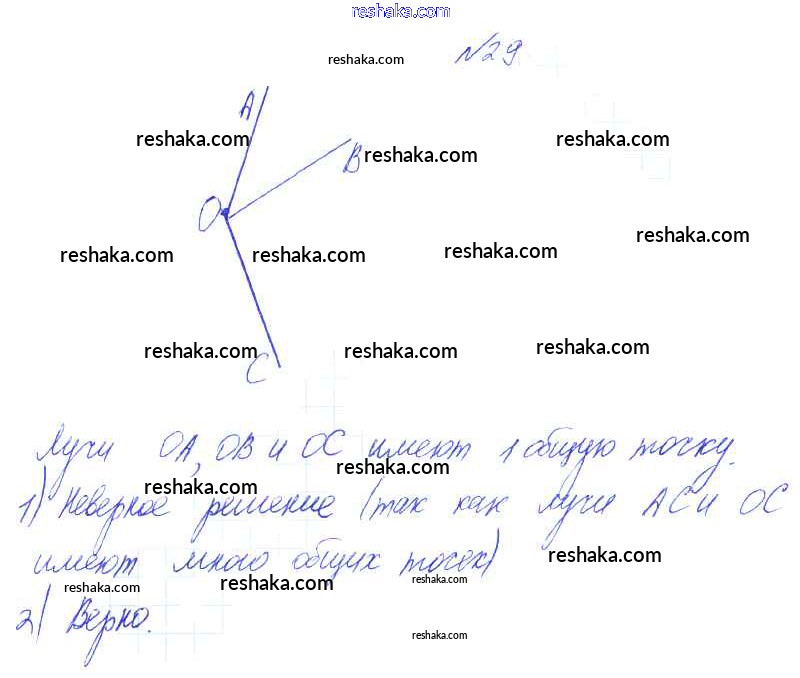 reshaka.com
reshaka.com
№29
A
reshaka.com
B
reshaka.com
reshaka.com
O
reshaka.com
reshaka.com
reshaka.com
reshaka.com
C
reshaka.com
reshaka.com
reshaka.com
Лучи OA, OB и OC имеют 1 общую точку.
reshaka.com
1) Неверное решение (так как лучи AC и OC
reshaka.com
имеют много общих точек)
reshaka.com
reshaka.com
reshaka.com
reshaka.com
2) Верно.
reshaka.com